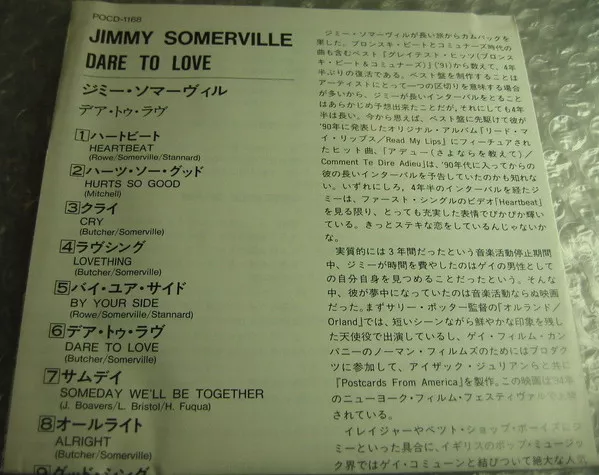 POCD-1168
JIMMY SOMERVILLE
DARE TO LOVE
ジミー・ソマーヴィル
デア・トゥ・ラヴ
1 ハートビート
HEARTBEAT
(Rowe/Somerville/Stannard)
2 ハーツ・ソー・グッド
HURTS SO GOOD
(Mitchell)
3 クライ
CRY
(Butcher/Somerville)
4 ラヴシング
LOVETHING
(Butcher/Somerville)
5 バイ・ユア・サイド
BY YOUR SIDE
(Rowe/Somerville/Stannard)
6 デア・トゥ・ラヴ
DARE TO LOVE
(Butcher/Somerville)
7 サムデイ
SOMEDAY WE'LL BE TOGETHER
(J. Boavers/L. Bristol/H. Fuqua)
8 オールライト
ALRIGHT
(Butcher/Somerville)
9 グッド・シング
ジミー・ソマーヴィルが長い旅からカムバックを
果した。ブロンスキ・ビートとコミュナーズ時代の
曲も含むベスト『グレイテスト・ヒッツ(ブロンス
キ・ビート&コミュナーズ)』('91)から数えて、4年
半ぶりの復活である。ベスト盤を制作することは
アーティストにとって一つの区切りを意味する場合
が多いから、ジミーが長いインターバルをとること
はあらかじめ予想出来たことだが、それにしても4年
半は長い。今から思えば、ベスト盤に先駆けて彼が
'90年に発表したオリジナル・アルバム『リード・マ
イ・リップス/Read My Lips』にフィーチュアされ
たヒット曲、「アデュー(さよならを教えて)/
Comment Te Dire Adieu」は、'90年代に入ってからの
彼の長いインターバルを予告していたのかも知れな
い。いずれにしろ、4年半のインターバルを経たジ
ミーは、ファースト・シングルのビデオ「Heartbeat」
を見る限り、とっても充実した表情でぴかぴか輝い
ている。きっとステキな恋をしているんじゃないか
な。
実質的には3年間だったという音楽活動停止期間
中、ジミーが時間を費やしたのはゲイの男性として
の自分自身を見つめることだったという。そんな
中、彼が夢中になっていたのは音楽活動ならぬ映画
だった。まずサリー・ポッター監督の『オルランド/
Orland』では、短いシーンながら鮮やかな印象を残し
た天使役で出演しているし、ゲイ・フィルム・カン
パニーのノーマン・フィルムズのためにはプロダク
ツに参加して、アイザック・ジュリアンらと共に
『Postcards From America』を製作。この映画は'94年
のニューヨーク・フィルム・フェスティヴァルで上映
されている。
イレイジャーやペット・ショップ・ボーイズにジ
ミーといった具合に、イギリスのポップ・ミュージッ
ク界ではゲイ・コミューンと結びついて絶大な人気